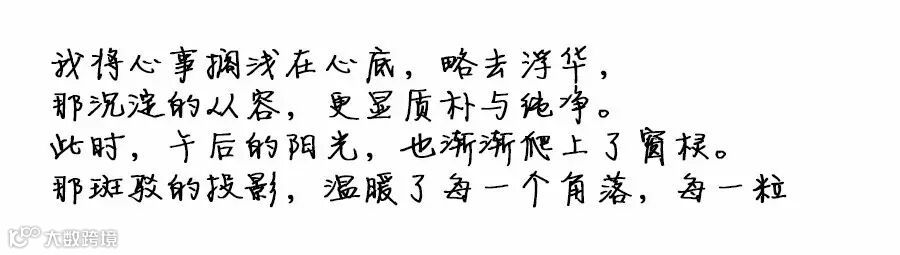 我将心事搁浅在心底，略去浮华，
那沉淀的从容，更显质朴与纯净。
此时，午后的阳光，也渐渐爬上了窗棂。
那斑驳的投影，温暖了每一个角落，每一粒
大数跨境